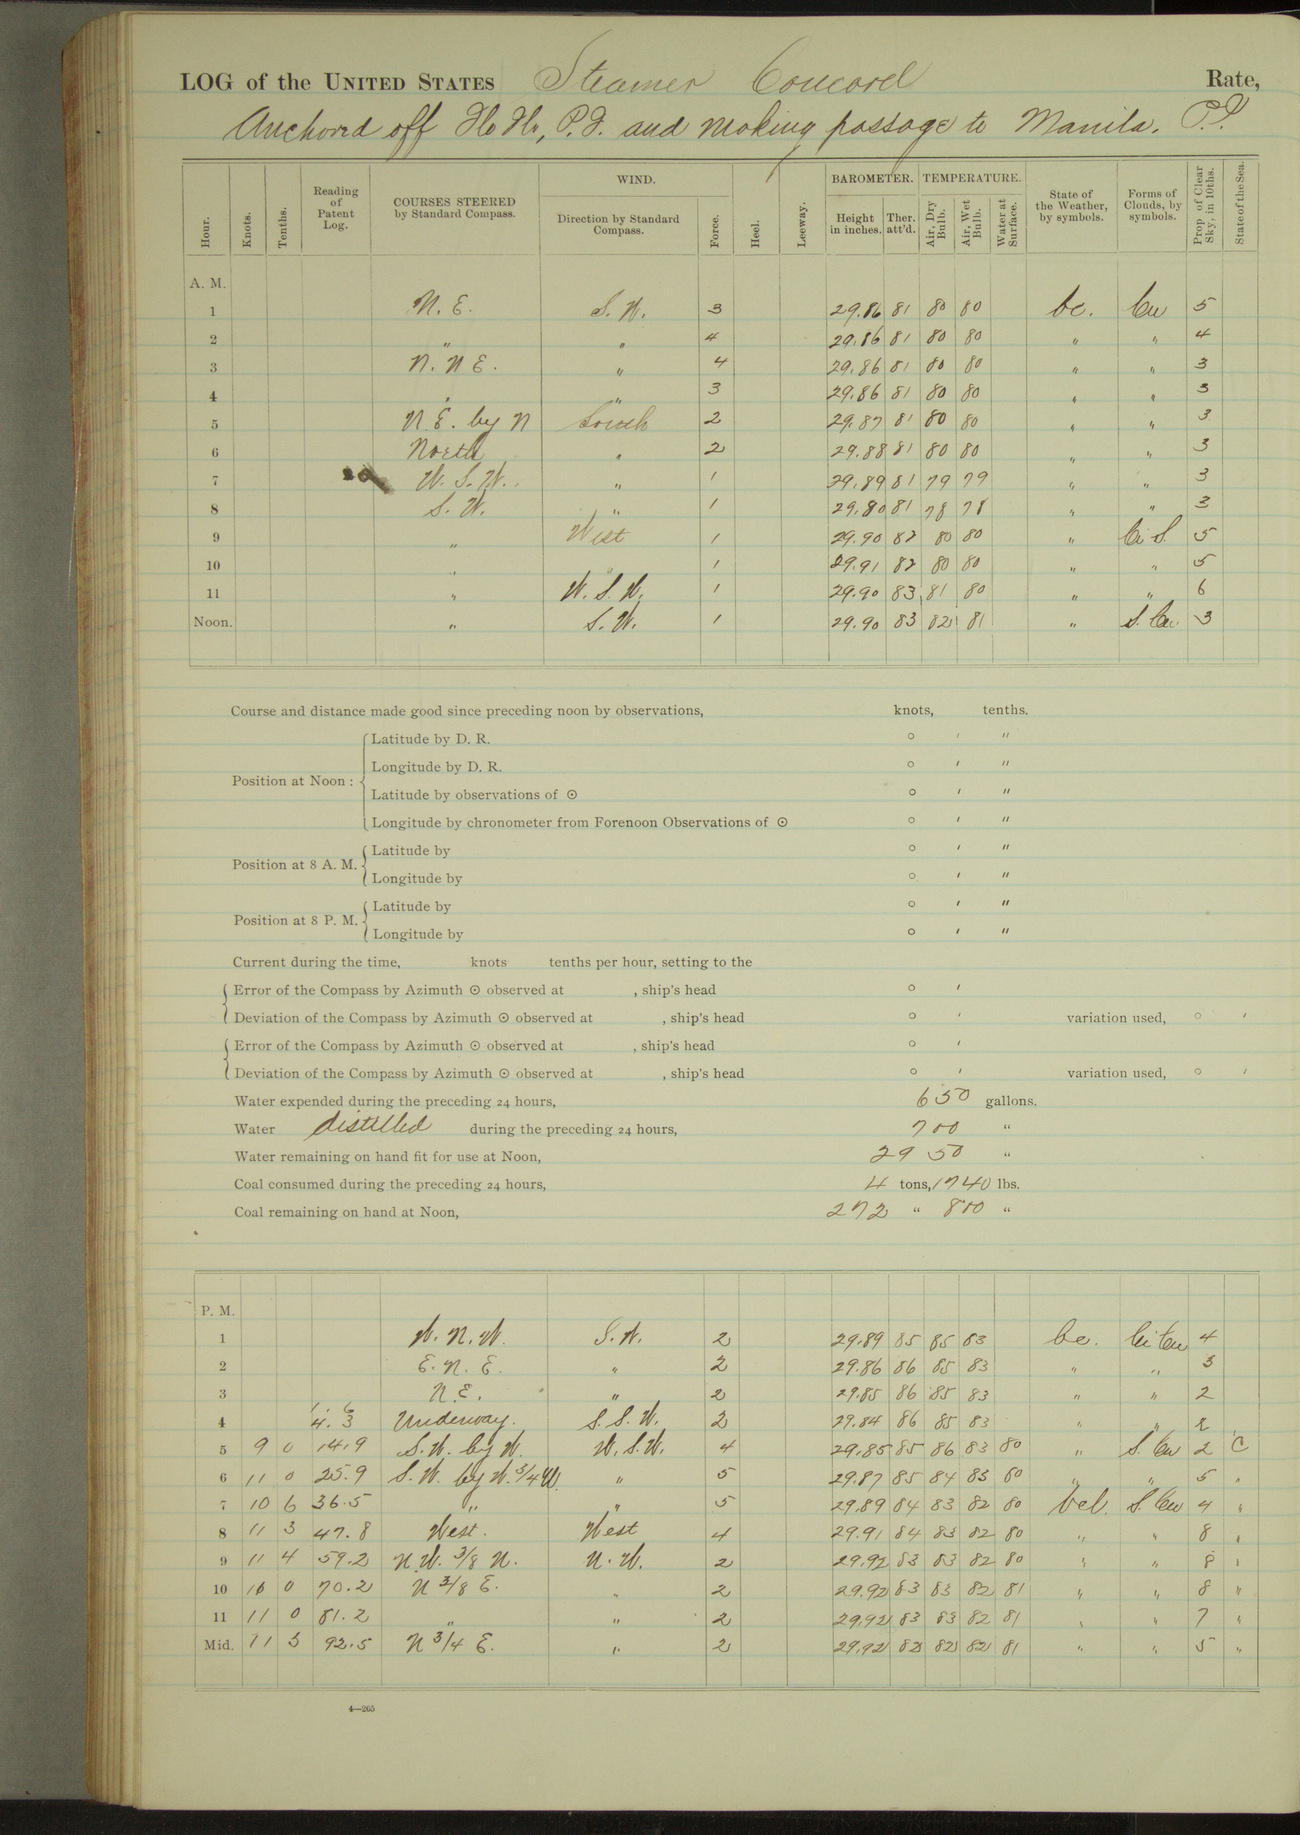 LOG of the UNITED STATES Steamer Concord Rate,
Anchored off Ilo Ilo, P.I. and making passage to Manila, P.I.
Hour. Knots. Tenths. Reading of Patent Log. COURSES STEERED by Standard Compass. WIND. Direction by Standard Compass. Force. Heel. Leeway. BAROMETER. Height in inches. Ther. att'd. TEMPERATURE. Air, Dry Bulb. Air, Wet Bulb. Water at Surface. State of the Weather, by symbols. Forms of Clouds, by symbols. Prop of Clear Sky, in 10ths. State of the Sea.
A. M.
1 N. E. S. W. 3 29.86 81 80 80 bc. Cu 5
2 " " 4 29.86 81 80 80 " " 4
3 N. N E. " 4 29.86 81 80 80 " " 3
4 " " 3 29.86 81 80 80 " " 3
5 N. E. by N South 2 29.87 81 80 80 " " 3
6 North " 2 29.88 81 80 80 " " 3
7 W. S. W. " 1 29.89 81 79 79 " " 3
8 S. W. " 1 29.80 81 78 78 " " 3
9 " West 1 29.90 82 80 80 " Ci S. 5
10 " " 1 29.91 82 80 80 " " 5
11 " W. S. W. 1 29.90 83 81 80 " " 6
Noon. " S. W. 1 29.90 83 82 81 " S. Cu. 3
Course and distance made good since preceding noon by observations, knots, tenths.
Latitude by D. R. ° ′ ″
Longitude by D. R. ° ′ ″
Position at Noon :
Latitude by observations of ☉ ° ′ ″
Longitude by chronometer from Forenoon Observations of ☉ ° ′ ″
Position at 8 A. M. Latitude by ° ′ ″
Longitude by ° ′ ″
Position at 8 P. M. Latitude by ° ′ ″
Longitude by ° ′ ″
Current during the time, knots tenths per hour, setting to the
Error of the Compass by Azimuth ☉ observed at , ship's head ° ′
Deviation of the Compass by Azimuth ☉ observed at , ship's head ° ′ variation used, ° ′
Error of the Compass by Azimuth ☉ observed at , ship's head ° ′
Deviation of the Compass by Azimuth ☉ observed at , ship's head ° ′ variation used, ° ′
Water expended during the preceding 24 hours, 650 gallons.
Water distilled during the preceding 24 hours, 700 "
Water remaining on hand fit for use at Noon, 2950 "
Coal consumed during the preceding 24 hours, 4 tons, 1740 lbs.
Coal remaining on hand at Noon, 272 " 800 "
P. M.
1 W. N. W. S. W. 2 29.89 85 85 83 bc. Ci Cu 4
2 E. N. E. " 2 29.86 86 85 83 " " 3
3 N. E. " 2 29.85 86 85 83 " " 2
1. 6
4 4. 3 Underway. S. S. W. 2 29.84 86 85 83 " " 2
5 9 0 14.9 S. W. by W. W. S. W. 4 29.85 85 86 83 80 " S. Cu 2 C
6 11 0 25.9 S. W. by W. 3/4 W. " 5 29.87 85 84 83 80 " " 5 "
7 10 6 36.5 " " 5 29.89 84 83 82 80 bcl. S. Cu 4 "
8 11 3 47.8 West. West 4 29.91 84 83 82 80 " " 8 "
9 11 4 59.2 N. W. 3/8 N. N. W. 2 29.92 83 83 82 80 " " 8 "
10 11 0 70.2 N 3/8 E. " 2 29.92 83 83 82 81 " " 8 "
11 11 0 81.2 " " 2 29.92 83 83 82 81 " " 7 "
Mid. 11 3 92.5 N 3/4 E. " 2 29.92 82 82 82 81 " " 5 "
4—265